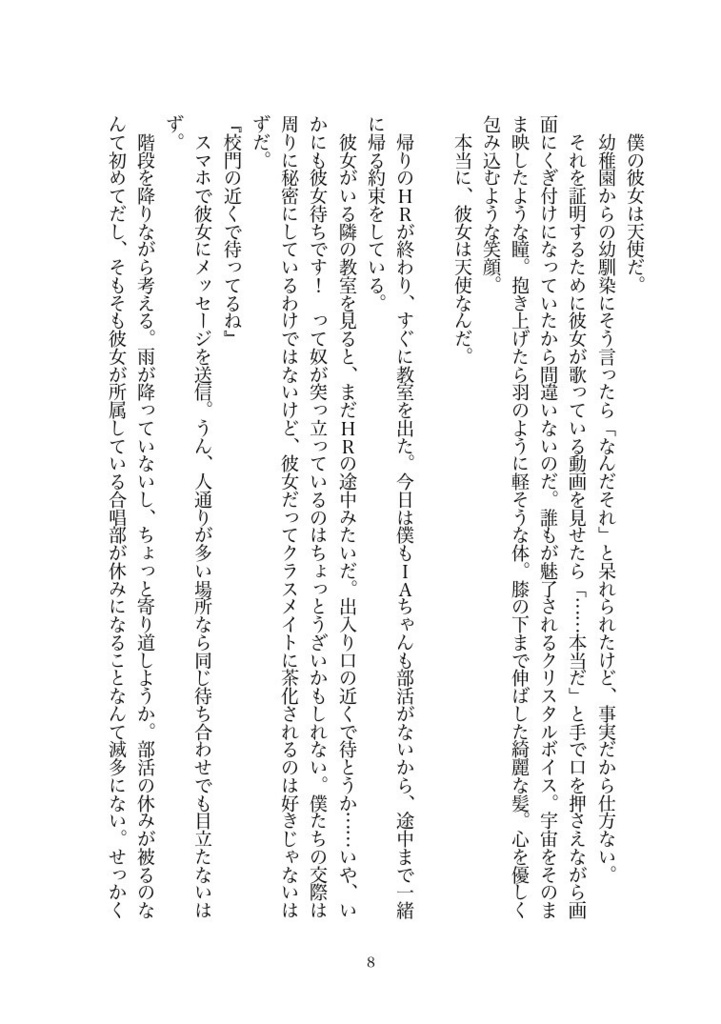 僕の彼女は天使だ。
幼稚園からの幼馴染にそう言ったら「なんだそれ」と呆れられたけど、事実だから仕方ない。
それを証明するために彼女が歌っている動画を見せたら「……本当だ」と手で口を押さえながら画
面にくぎ付けになっていたから間違いないのだ。誰もが魅了されるクリスタルボイス。宇宙をそのま
ま映したような瞳。抱き上げたら羽のように軽そうな体。膝の下まで伸ばした綺麗な髪。心を優しく
包み込むような笑顔。
本当に、彼女は天使なんだ。
帰りのＨＲが終わり、すぐに教室を出た。今日は僕もＩＡちゃんも部活がないから、途中まで一緒
に帰る約束をしている。
彼女がいる隣の教室を見ると、まだＨＲの途中みたいだ。出入り口の近くで待とうか……いや、い
かにも彼女待ちです！　って奴が突っ立っているのはちょっとうざいかもしれない。僕たちの交際は
周りに秘密にしているわけではないけど、彼女だってクラスメイトに茶化されるのは好きじゃないは
ずだ。
『校門の近くで待ってるね』
スマホで彼女にメッセージを送信。うん、人通りが多い場所なら同じ待ち合わせでも目立たないは
ず。
階段を降りながら考える。雨が降っていないし、ちょっと寄り道しようか。部活の休みが被るのな
んて初めてだし、そもそも彼女が所属している合唱部が休みになることなんて滅多にない。せっかく
8